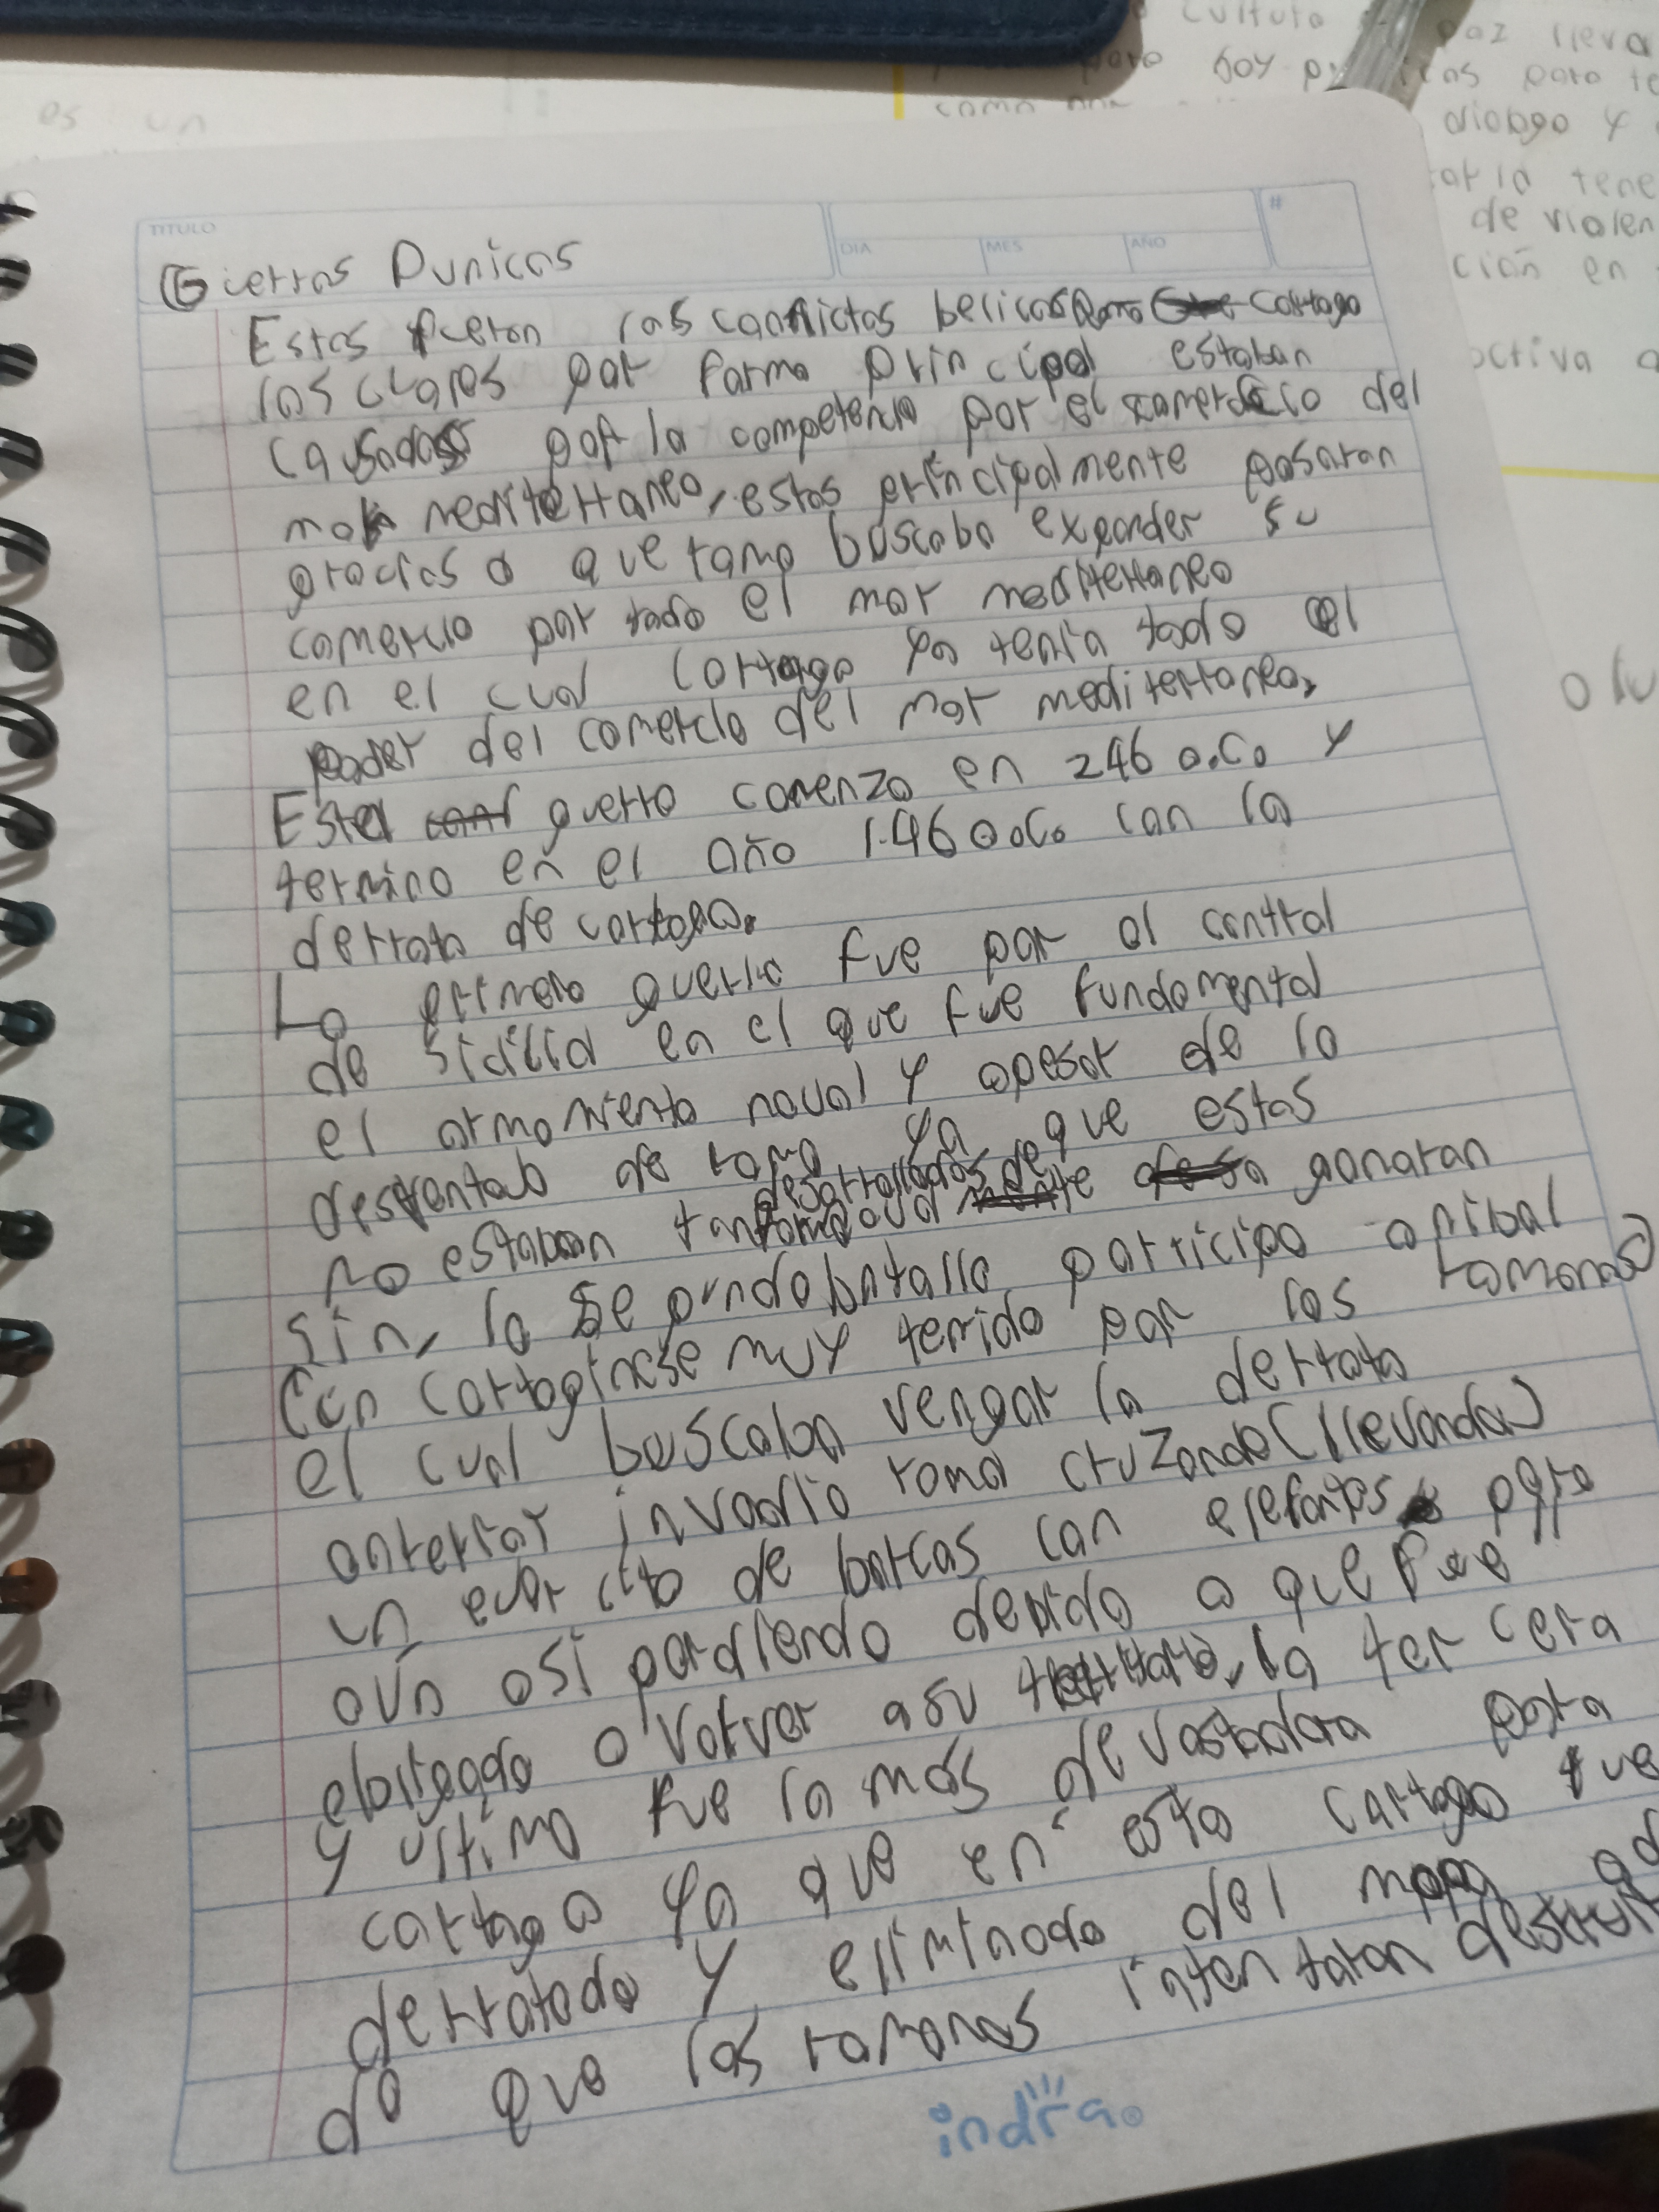 cultura paz lleva
para hoy para te
como por
es un diologo y
tar la tene
de violen
ción en
TITULO
DIA MES AÑO #
Gierras Punicas
Estas fueron las conflictos belicos Roma Cartago
los cuales por forma principal estaban
causados por la competencia por el comercio del
mar mediterraneo, estas principalmente pasaran
gracias a que roma buscaba expander su
comercio por todo el mar mediterraneo
en el cual cartago ya tenía todo el
poder del comercio del mar mediterraneo,
Esta guerra comenzo en 246 a.C. y
termino en el año 146 a.C. con la
derrota de cartago.
La primera guerra fue por al control
de Sicilia en el que fue fundamental
el armamiento naval y apesar de la
desventab de roma ya que estas
no estaban tan desarrollados de forma naval ganaran
sin, la segunda batalla participo anibal
(un cartaginese muy temido por los romanos)
el cual buscaba vengar la derrota
anterior invadio roma cruzando (llevando)
un ejercito de barcas con elefantes
aún asi perdiendo debido a que fue
obligado a volver a su territorio, la tercera
y ultima fue la más devastadora para
cartago ya que en esta cartago fue
derratado y eliminado del mapa ad
do que las romanos intentaran destruir
indra.